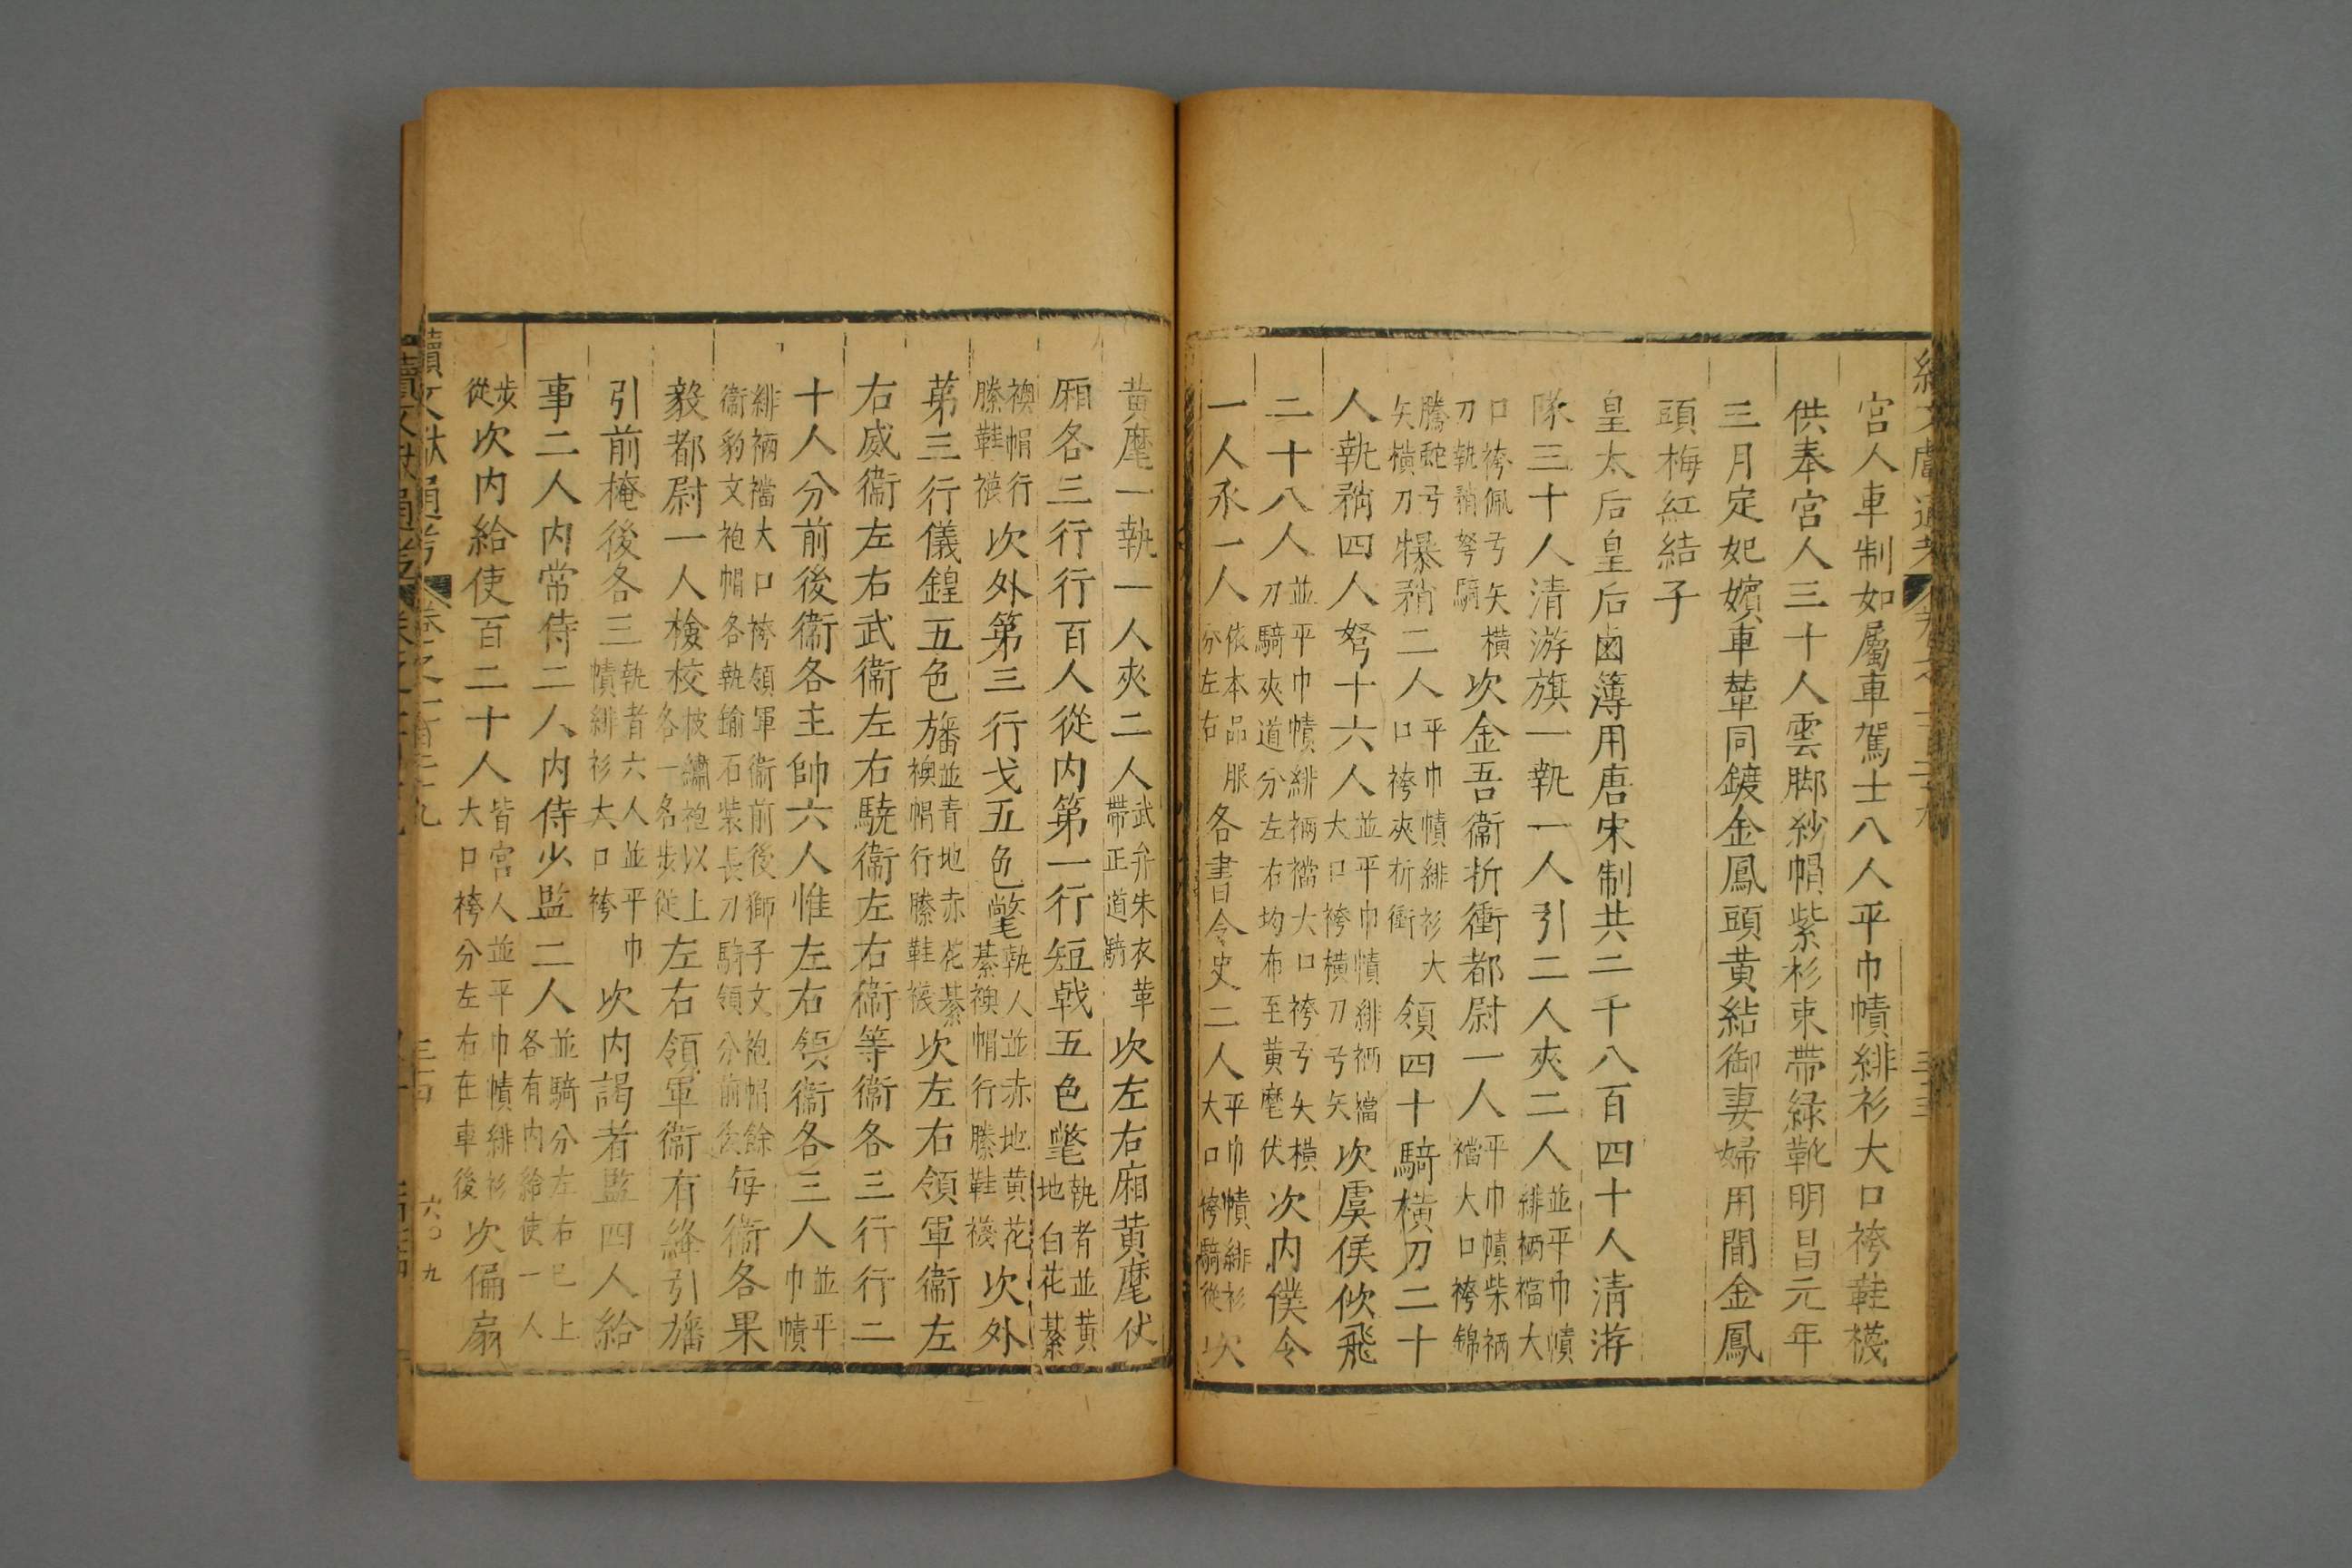 宮人車制如屬車駕士八人平巾幘緋衫大口袴鞋襪
供奉宮人三十人雲脚紗帽紫衫束帶綠靴明昌元年
三月定妃嬪車輦同鍍金鳳頭黃結御妻婦用間金鳳
頭梅紅結子
皇太后皇后鹵簿用唐宋制共二千八百四十人清游
隊三十人清游旗一執一人引二人夾二人並平巾幘緋裲襠大
口袴佩弓矢橫刀執矟弩騎次金吾衞折衝都尉一人平巾幘柴裲襠大口袴錦
騰蛇弓矢橫刀㩧矟二人平巾幘緋衫大口袴夾折衝領四十騎橫刀二十
人執矟四人弩十六人並平巾幘緋裲襠大口袴橫刀弓矢次虞侯佽飛
二十八人並平巾幘緋裲襠大口袴弓矢橫刀騎夾道分左右均布至黃麾仗次內僕令
一人丞一人依本品服分左右各書令史二人平巾幘緋衫大口袴騎從次
黃麾一執一人夾二人武弁朱衣革帶正道騎次左右廂黃麾仗
廂各三行行百人從内第一行短戟五色氅執者並黃地白花綦
襖帽行縢鞋襪次外第三行戈五色氅執人並赤地黃花綦襖帽行縢鞋襪次外
第三行儀鍠五色旛並青地赤花綦襖帽行縢鞋襪次左右領軍衞左
右威衞左右武衞左右驍衞左右衞等衞各三行行二
十人分前後衞各主帥六人惟左右領衞各三人並平巾幘
緋裲襠大口袴領軍衞前後獅子文袍帽餘衞豹文袍帽各執鍮石裝長刀騎領分前後每衞各果
毅都尉一人檢校被繡袍以上各一名步從左右領軍衞有絳引旛
引前掩後各三執者六人並平巾幘緋衫大口袴次内謁者監四人給
事二人内常侍二人内侍少監二人並騎分左右已上各有内給使一人
步從次内給使百二十人皆宮人並平巾幘緋衫大口袴分左右在車後次偏扇
續文獻通考 卷之一百二十九 三四 六〇九